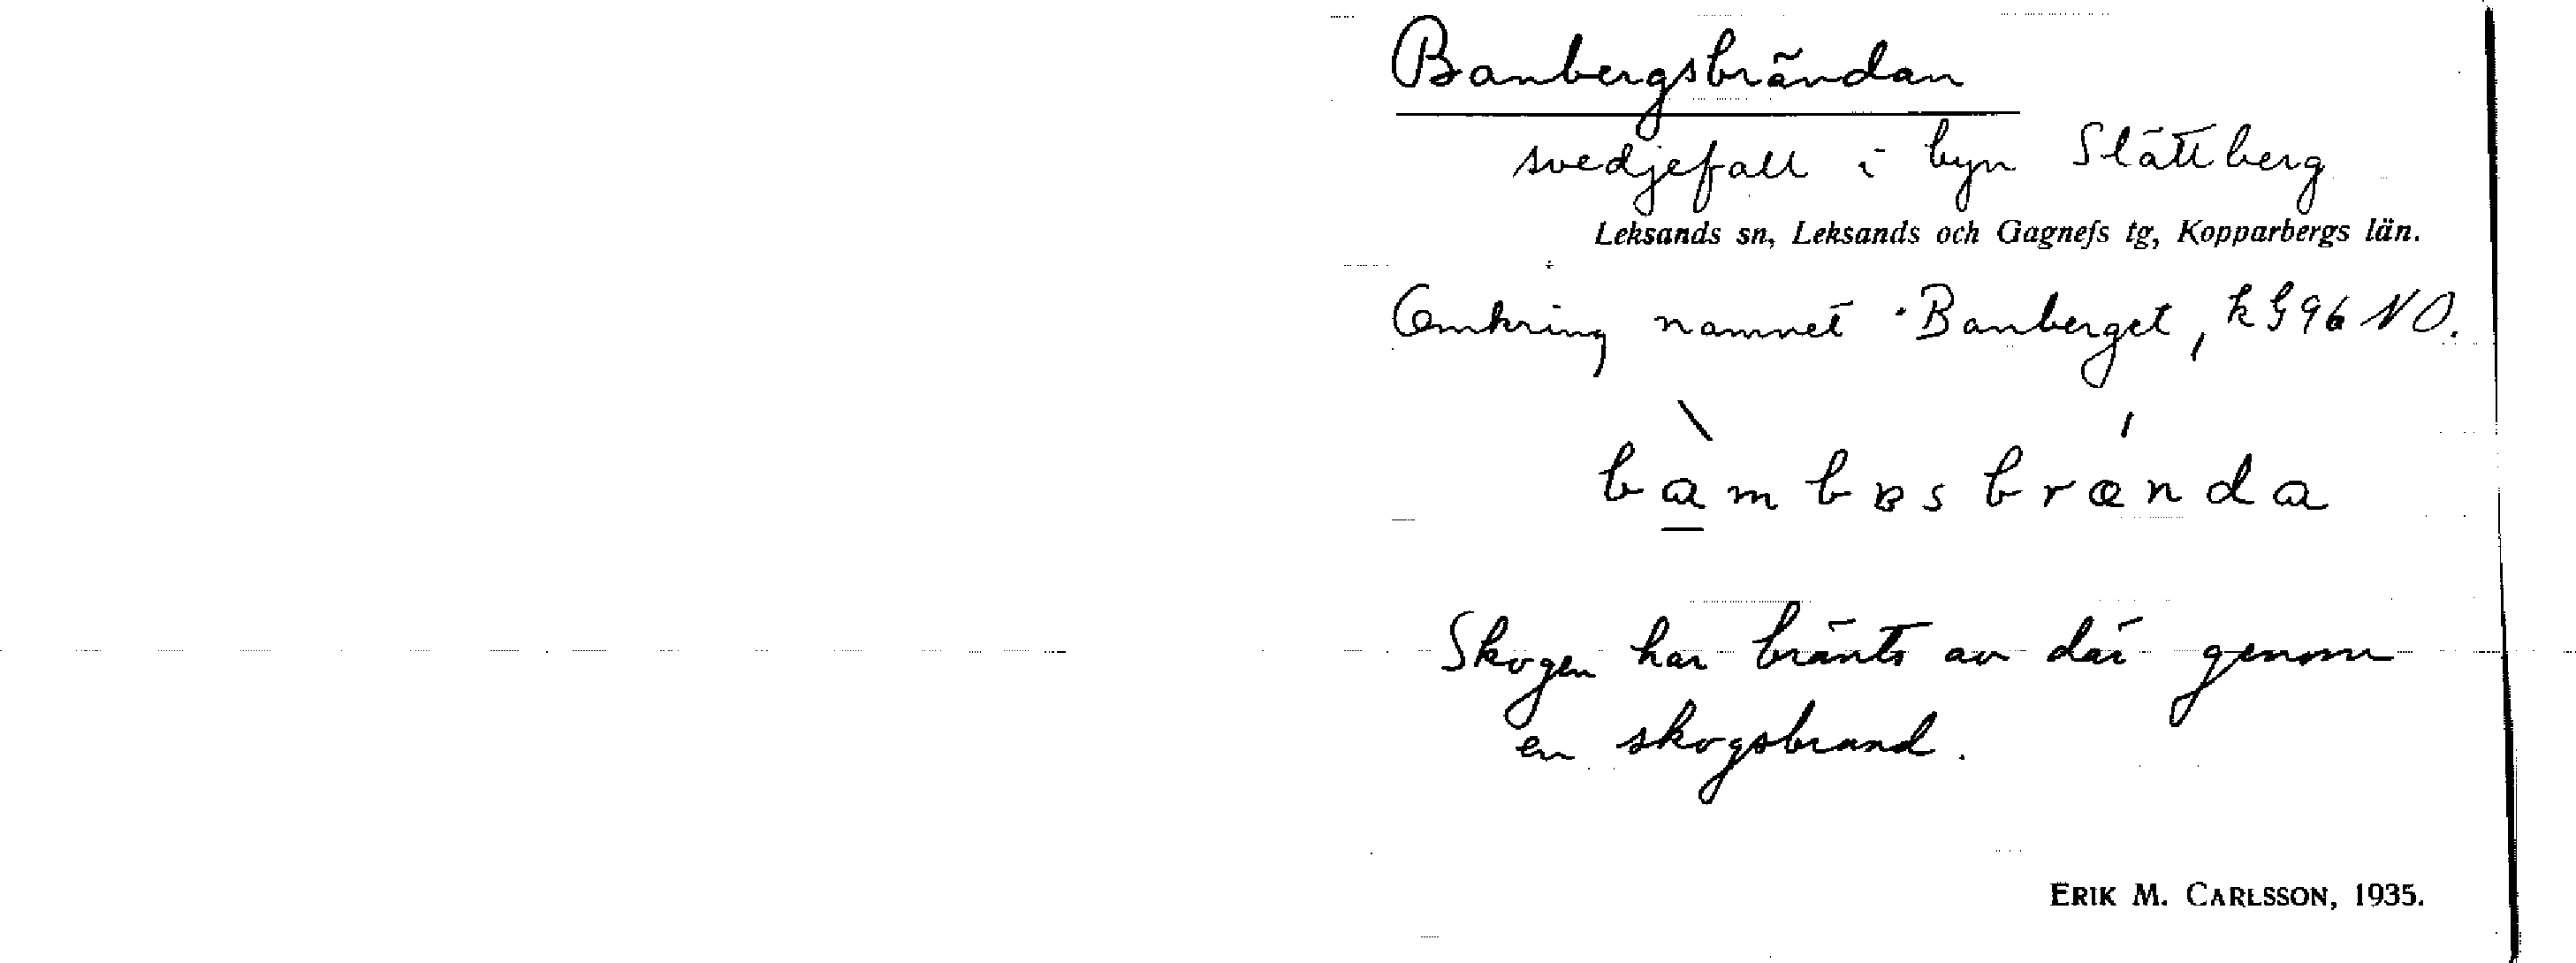 Banbergsbrändan
svedjefall i byn Slättberg
Leksands sn, Leksands och Gagnefs tg, Kopparbergs län.
Omkring namnet Banberget, k G 96 NO.
bambɐsbrænda
Skogen har bränts av där genom
en skogsbrand.
ERIK M. CARLSSON, 1935.